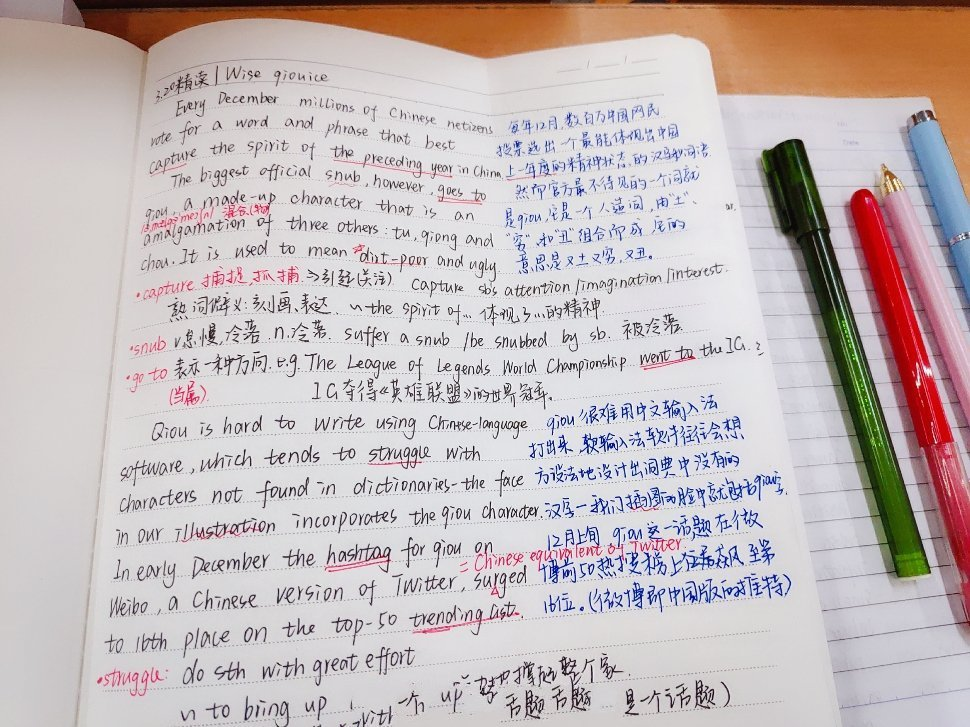 3.20精读 | Wise qiouice
Every December millions of Chinese netizens
vote for a word and phrase that best
capture the spirit of the preceding year in China
The biggest official snub, however, goes to
qiou, a made-up character that is an
混合(物)
amalgamation of three others: tu, qiong and
chou. It is used to mean dirt-poor and ugly
每年12月,数百万中国网民
投票选出一个最能体现出中国
上一年度的精神状态的汉字和词语
然而官方最不待见的一个词就
是qiou,它是一个人造词,由"土"、
"穷"和"丑"组合而成,它的
意思是又土又穷,又丑。
•capture 捕捉,抓捕 →引起(关注) capture sb's attention/imagination/interest.
熟词僻义:刻画、表达. ~ the spirit of... 体现了...的精神.
•snub v.怠慢,冷落 n.冷落. suffer a snub /be snubbed by sb. 被冷落
•go to 表示一种方向. e.g. The League of Legends World Championship went to the IG.
(当属) IG夺得《英雄联盟》的世界冠军。
Qiou is hard to write using Chinese-language
software, which tends to struggle with
characters not found in dictionaries-the face
in our illustration incorporates the qiou character.
In early December the hashtag for qiou on
= Chinese equivalent of Twitter
Weibo, a Chinese version of Twitter, surged
to 16th place on the top-50 trending list.
qiou 很难用中文输入法
打出来,
方设法地设计出词典中没有的
汉字—我们插图的脸中就包括qiou字.
12月上旬 qiou这一话题在微
博前50热搜榜上 至第
16位。(微博即中国版的推特)
•struggle: do sth with great effort
~ to bring up 整个家
with 一个 up 话题话题 是一个话题)